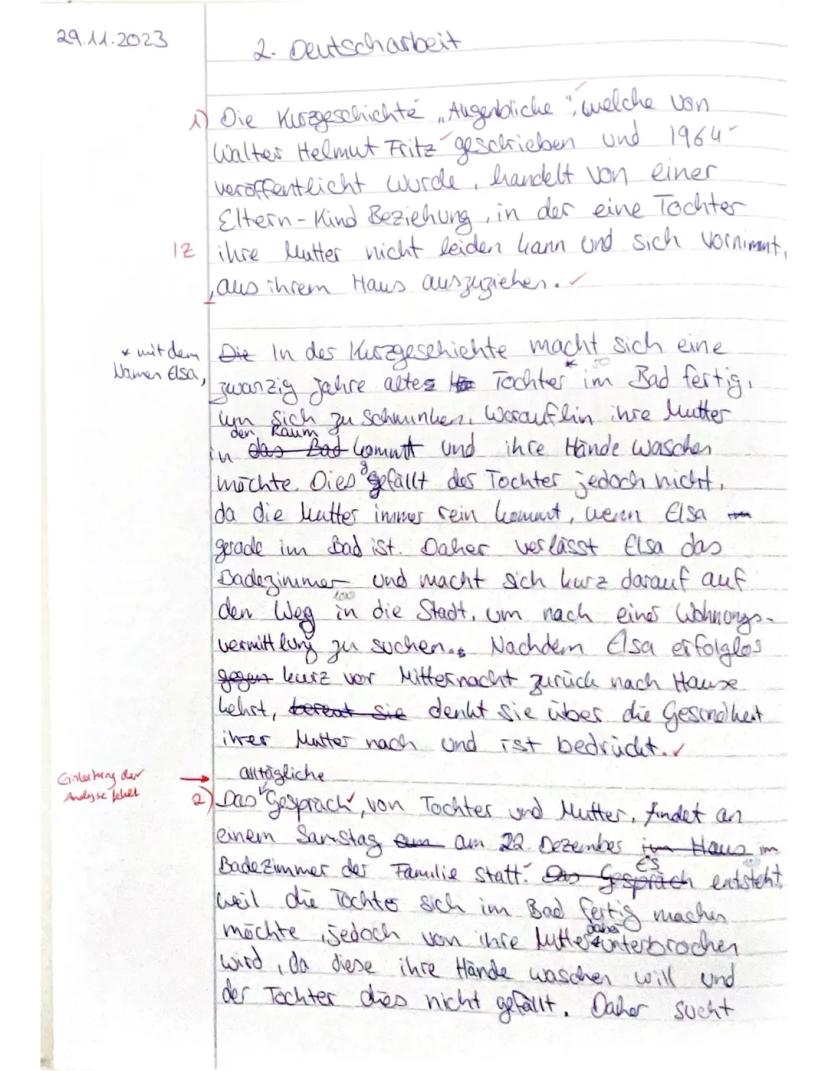 29.11.2023
2. Deutscharbeit
1) Die Kurzgeschichte „Augenblicke“, welche von
Walter Helmut Fritz geschrieben und 1964
veröffentlicht wurde, handelt von einer
Eltern-Kind Beziehung, in der eine Tochter
12 ihre Mutter nicht leiden kann und sich vornimmt,
aus ihrem Haus auszuziehen.
* mit dem Namen Elsa,
Die In der Kurzgeschichte macht sich eine
zwanzig Jahre alte Tochter * im Bad fertig,
um sich zu schminken. Woraufhin ihre Mutter
den Raum
in das Bad kommt und ihre Hände waschen
möchte. Dies gefällt der Tochter jedoch nicht,
da die Mutter immer rein kommt, wenn Elsa
gerade im Bad ist. Daher verlässt Elsa das
Badezimmer und macht sich kurz darauf auf
den Weg in die Stadt, um nach einer Wohnungs-
vermittlung zu suchen. Nachdem Elsa erfolglos
gegen kurz vor Mitternacht zurück nach Hause
kehrt, bereut sie denkt sie über die Gesundheit
ihrer Mutter nach und ist bedrückt.
Einleitung der
Analyse fehlt
alltägliche
2) Das Gespräch, von Tochter und Mutter, findet an
einem Samstag am 22. Dezember im Haus im
Badezimmer der Familie statt. Das Gespräch entsteht,
es
weil die Tochter sich im Bad fertig machen
möchte, jedoch von ihre Mutter unterbrochen
dabei
wird, da diese ihre Hände waschen will und
der Tochter dies nicht gefällt. Daher sucht